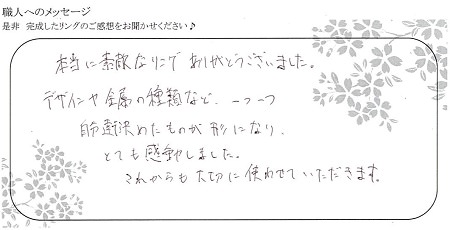 職人へのメッセージ
是非 完成したリングのご感想をお聞かせください♪
本当に素敵なリング ありがとうございました。
デザインや金属の種類など、一つ一つ
自分達決めたものが形になり、
とても感動しました。
これからも大切に使わせていただきます。